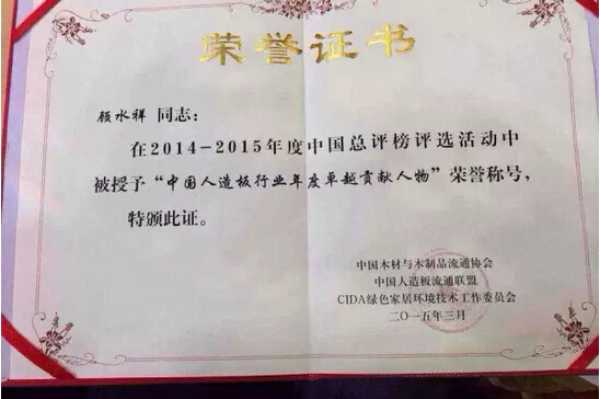 荣誉证书
顾水祥 同志：
在2014-2015年度中国总评榜评选活动中
被授予“中国人造板行业年度卓越贡献人物”荣誉称号，
特颁此证。
中国木材与木制品流通协会
中国人造板流通联盟
CIDA绿色家居环境技术工作委员会
二〇一五年三月